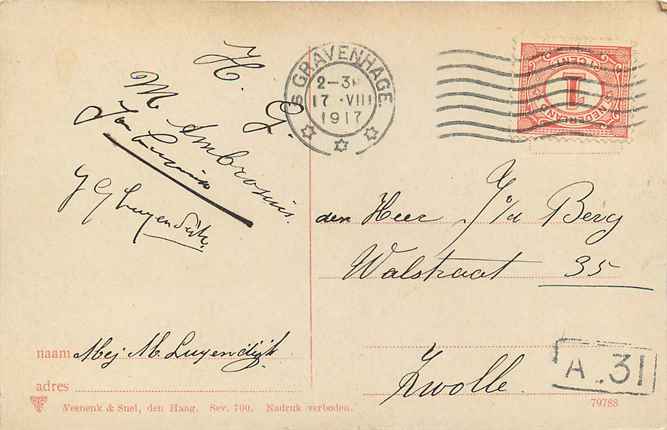 H. G.
M. Ambrosius.
J G Luyendijk
's GRAVENHAGE.
2-3N
17 .VIII
1917
NEDERLAND
1
den Heer J. v/d Berg
Walstraat 35
Zwolle.
A .31
naam Mej M. Luyendijk
adres
Veenenk & Snel, den Haag. Sev. 700. Nadruk verboden.
79788